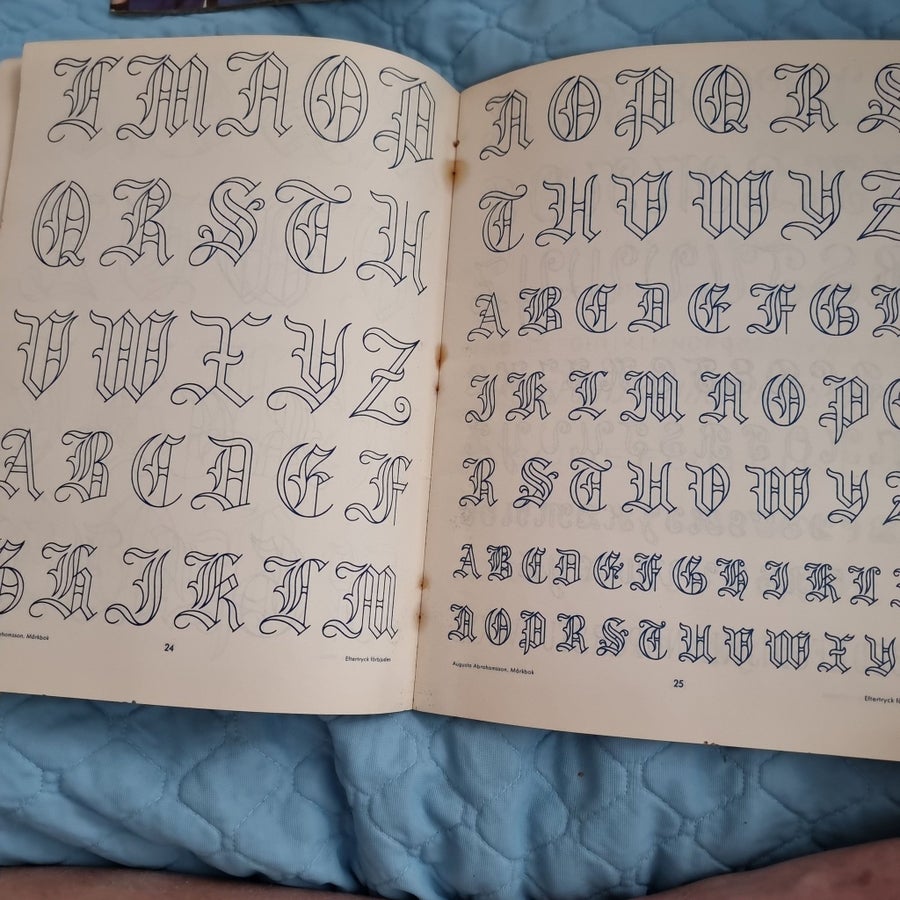 L M N O P
Q R S T U
V W X Y Z
A B C D E F
G H J K L M
rahamsson, Märkbok
24
Eftertryck förbjudes
N O P Q R S
T U V W Y Z
A B C D E F G H
J K L M N O P Q
R S T U V W Y Z
A B C D E F G H J K L
N O P Q R S T U V W X Y
Augusta Abrahamsson, Märkbok
25
Eftertryck